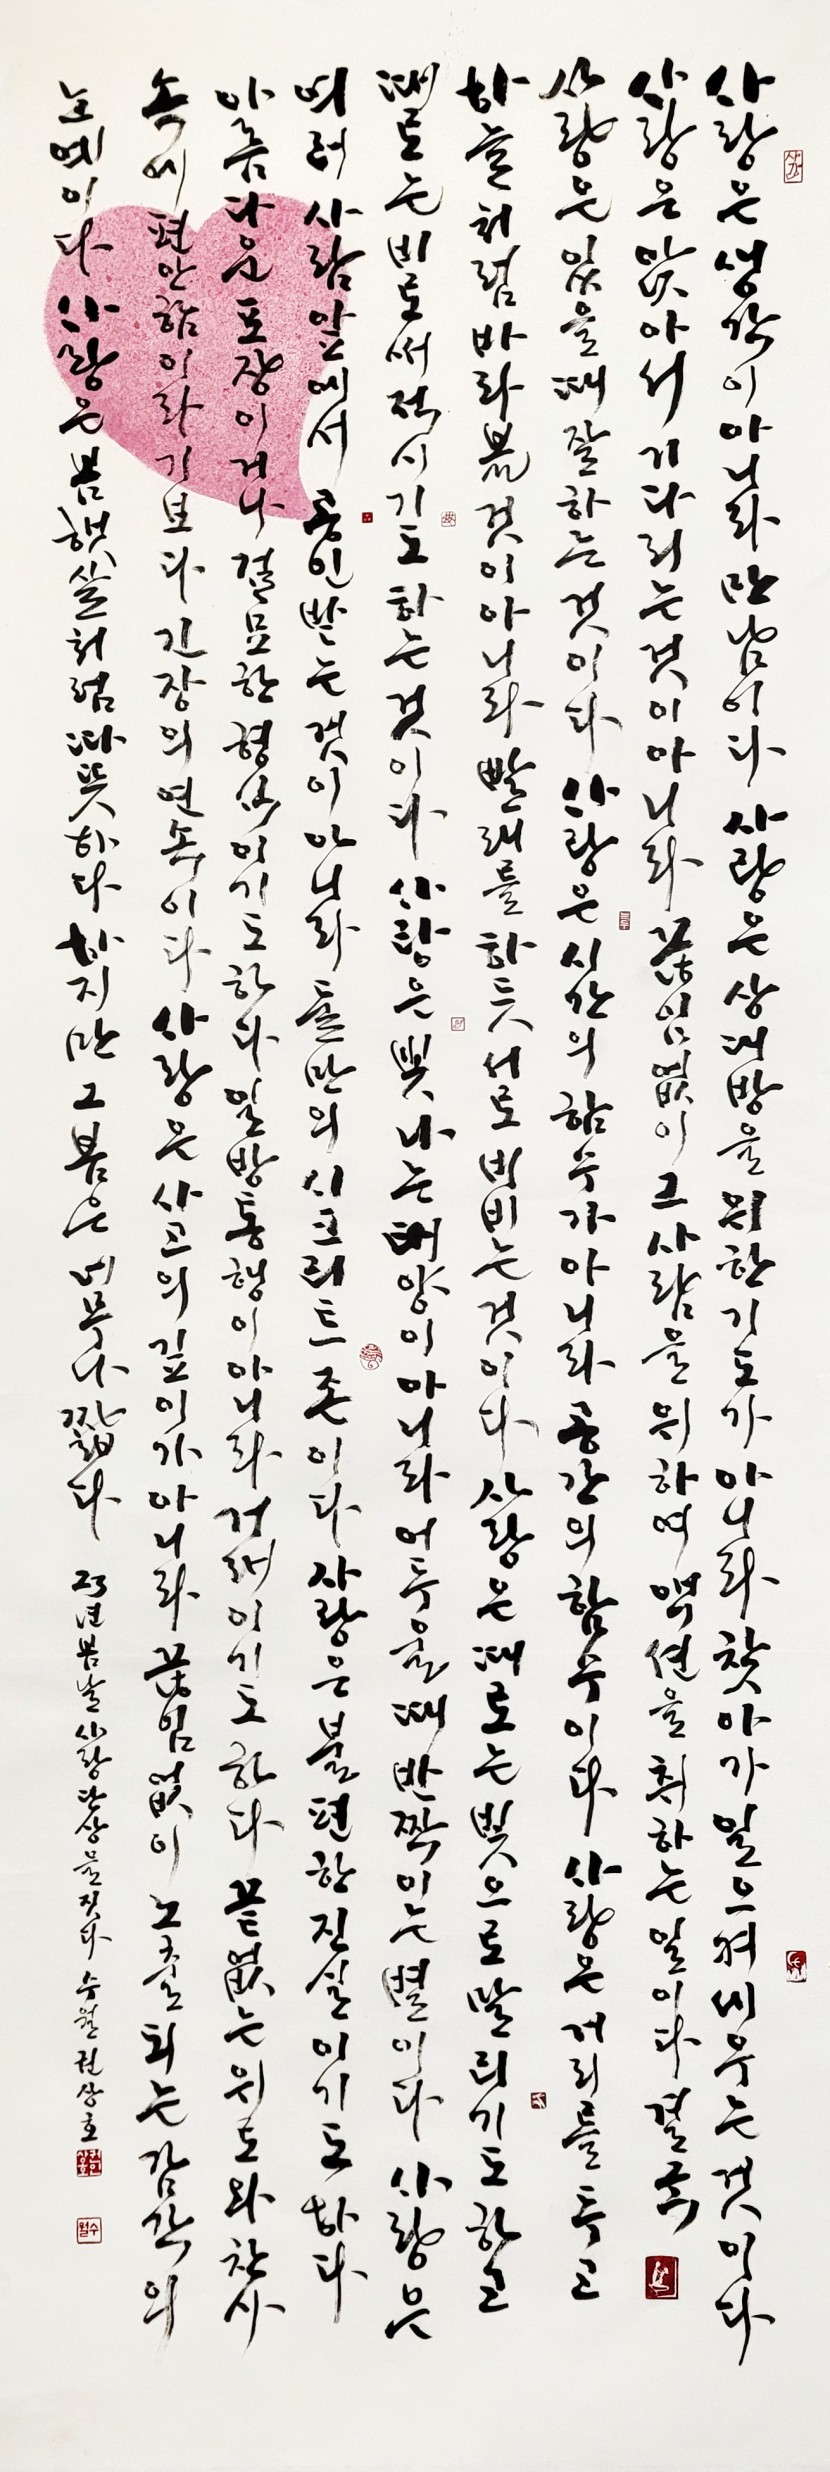 사랑은 생각이 아니라 만남이다 사랑은 상대방을 위한 기도가 아니라 찾아가 일으켜 세우는 것이다
사랑은 앉아서 기다리는 것이 아니라 끊임없이 그 사람을 위하여 액션을 취하는 일이다 결국
사랑은 있을 때 잘하는 것이다 사랑은 시간의 함수가 아니라 공간의 함수이다 사랑은 거리를 두고
하늘처럼 바라볼 것이 아니라 빨래를 하듯 서로 비비는 것이다 사랑은 때로는 빛으로 말리기도 하고
때로는 비로써 적시기도 하는 것이다 사랑은 빛나는 태양이 아니라 어두울 때 반짝이는 별이다 사랑은
여러 사람 앞에서 공인받는 것이 아니라 둘만의 시크리트 존이다 사랑은 불편한 진실이기도 하다
아름다운 포장이거나 절묘한 형상이기도 하다 일방통행이 아니라 거래이기도 하다 끝없는 위로와 찬사
속에 편안함이라기보다 긴장의 연속이다 사랑은 사고의 깊이가 아니라 끊임없이 노출되는 감각의
노예이다 사랑은 봄 햇살처럼 따뜻하다 하지만 그 봄은 너무나 짧다
23년 봄날 사랑 단상을 짓다 수월 권상호